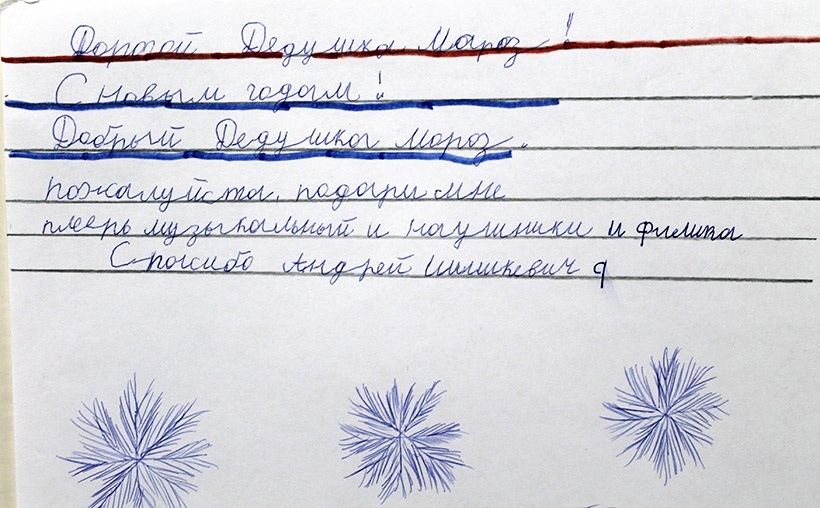 Дорогой Дедушка Мороз!
С новым годам!
Добрый Дедушка мороз.
пожалуйста, подари мне
плеерь музыкальный и наушники и
Спасибо Андрей Шишкевич 9